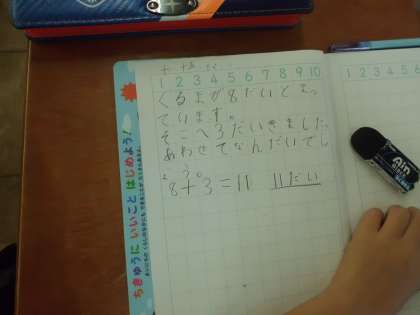 1 2 3 4 5 6 7 8 9 10
くるまが8だいとまっ
ています。
そこへ3だいきました
あわせてなんだいでし
ょう。
8+3=11 11だい
ちきゅうにいいことはじめよう!